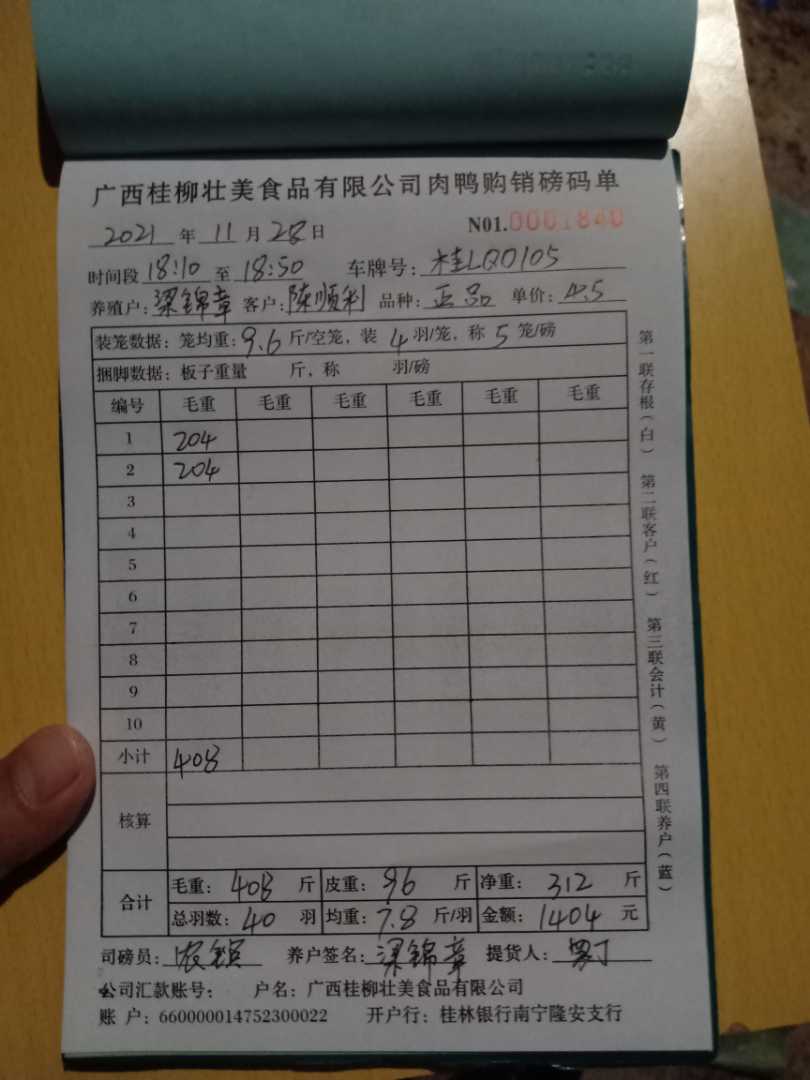 广西桂柳壮美食品有限公司肉鸭购销磅码单
2021 年 11 月 28 日 N01.0001840
时间段 18:10 至 18:50 车牌号：桂LQ0105
养殖户：梁锦章 客户：陈顺利 品种：正品 单价：4.5
装笼数据：笼均重：9.6 斤/空笼，装 4 羽/笼，称 5 笼/磅
捆脚数据：板子重量 斤，称 羽/磅
编号 毛重 毛重 毛重 毛重 毛重 毛重
1 204
2 204
3
4
5
6
7
8
9
10
小计 408
核算
合计 毛重：408 斤 皮重：96 斤 净重：312 斤
总羽数：40 羽 均重：7.8 斤/羽 金额：1404 元
司磅员：农 养户签名：梁锦章 提货人：
公司汇款账号： 户名：广西桂柳壮美食品有限公司
账 户：660000014752300022 开户行：桂林银行南宁隆安支行
第一联存根（白） 第二联客户（红） 第三联会计（黄） 第四联养户（蓝）